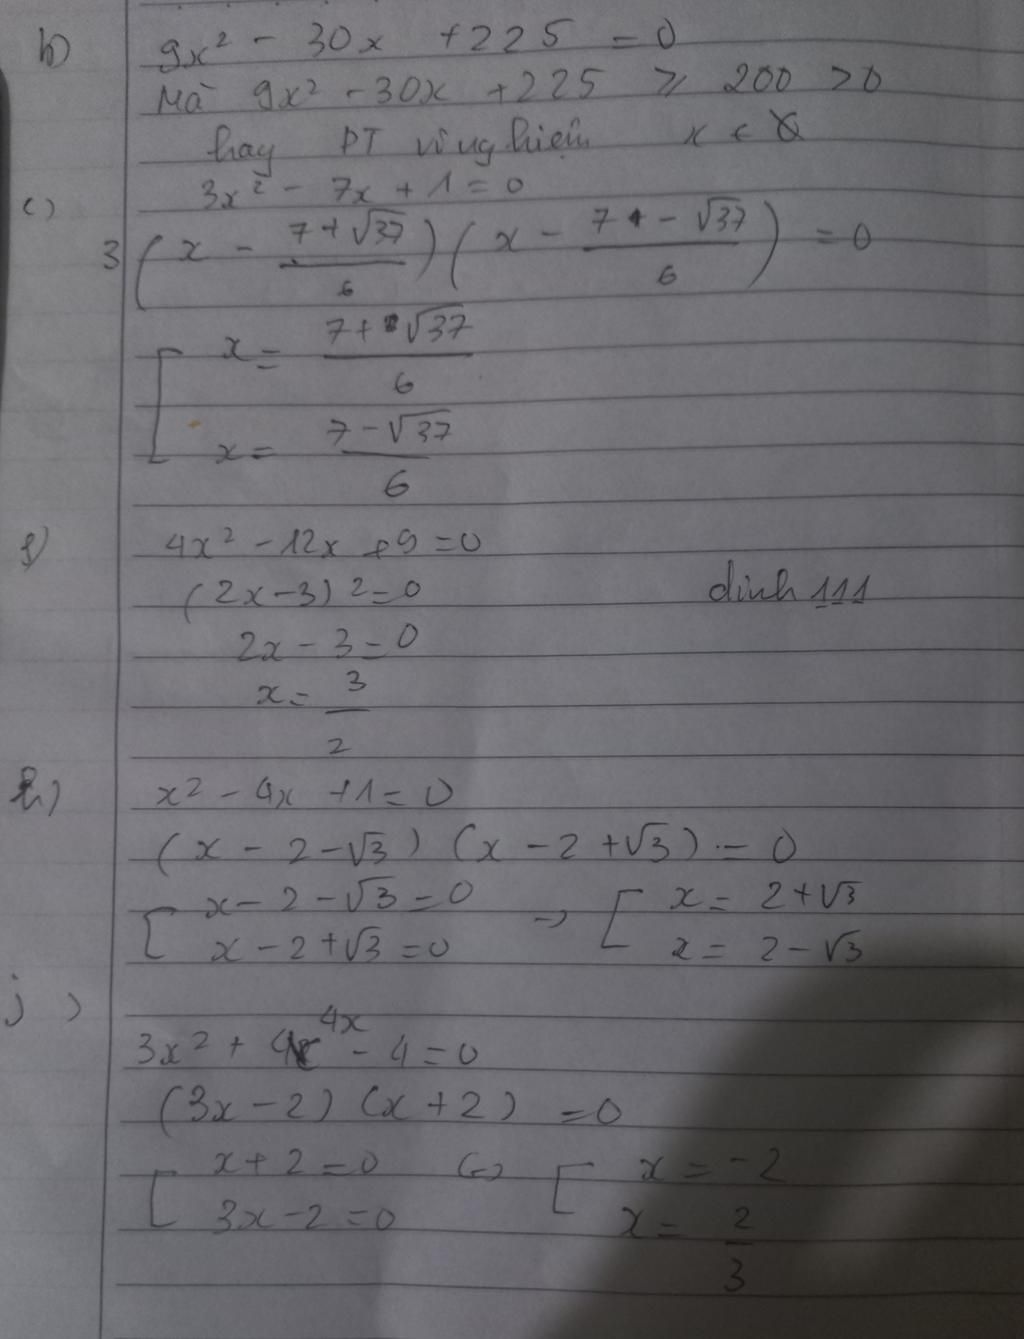 b) 9x² - 30x + 225 = 0
Mà 9x² - 30x + 225 ⩾ 200 > 0
hay PT vô nghiệm x ∈
c) 3x² - 7x + 1 = 0
3(x - (7+√37)/6)(x - (7-√37)/6) = 0
[ x = (7+√37)/6
x = (7-√37)/6
f) 4x² - 12x + 9 = 0
(2x-3)2 = 0 dinh 111
2x - 3 = 0
x = 3/2
h) x² - 4x + 1 = 0
(x - 2 - √3) (x - 2 + √3) = 0
[ x - 2 - √3 = 0 → [ x = 2 + √3
x - 2 + √3 = 0 x = 2 - √3
j)
3x² + 4x - 4 = 0
(3x - 2) (x + 2) = 0
[ x + 2 = 0 (=) [ x = -2
3x - 2 = 0 x = 2/3